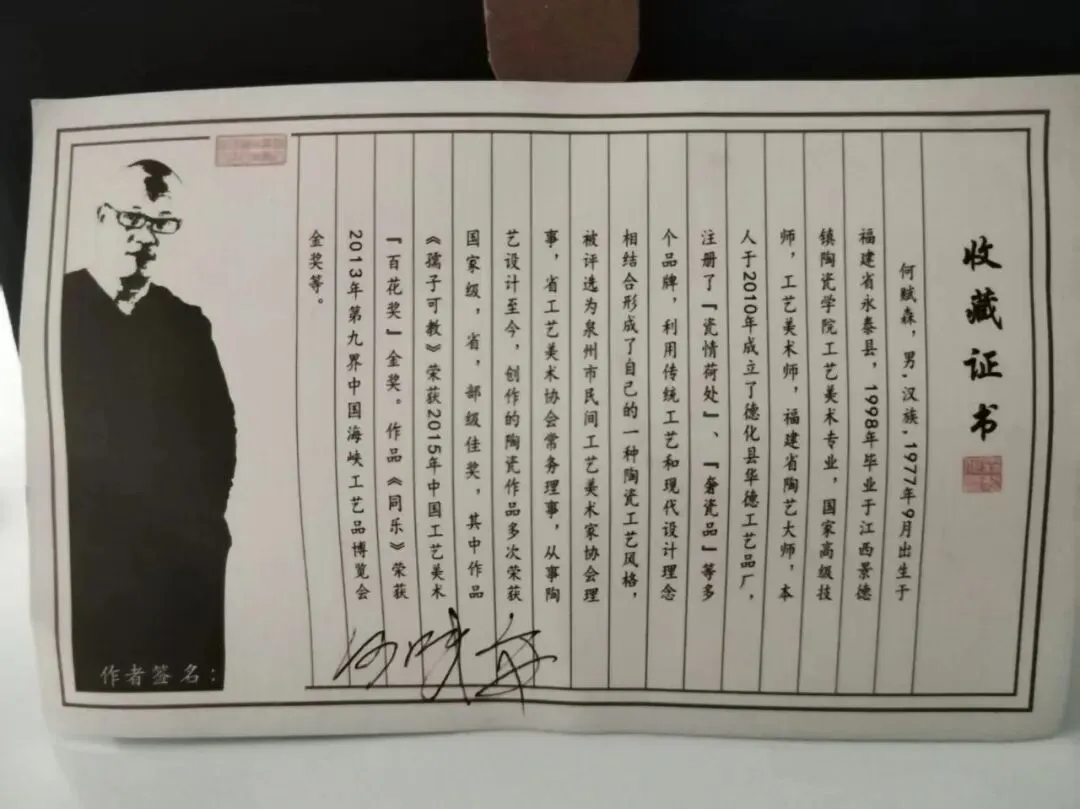 收藏证书
何赋森，男.汉族.1977年9月出生于
福建省永泰县，1998年毕业于江西景德
镇陶瓷学院工艺美术专业，国家高级技
师，工艺美术师，福建省陶艺大师，本
人于2010年成立了德化县华德工艺品厂，
注册了『瓷情荷处』、『奢瓷品』等多
个品牌，利用传统工艺和现代设计理念
相结合形成了自己的一种陶瓷工艺风格，
被评选为泉州市民间工艺美术家协会理
事，省工艺美术协会常务理事，从事陶
艺设计至今，创作的陶瓷作品多次荣获
国家级，省，部级佳奖，其中作品
《孺子可教》荣获2015年中国工艺美术
『百花奖』金奖。作品《同乐》荣获
2013年第九界中国海峡工艺品博览会
金奖等。
作者签名：